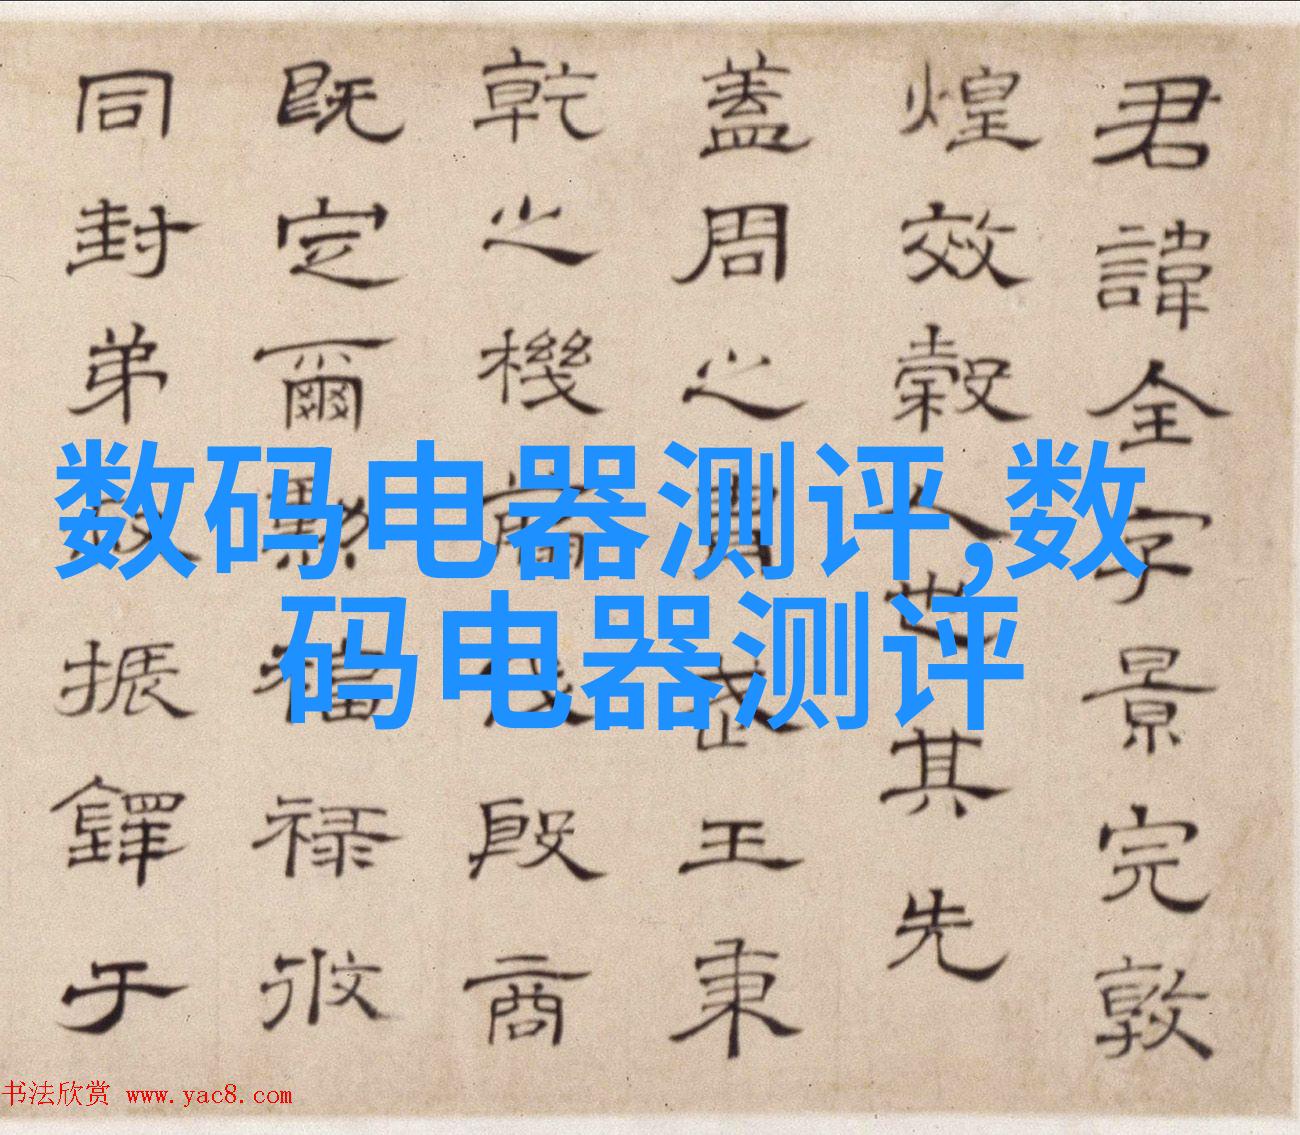 君諱全字景完敦
煌效穀人也其先
蓋周之胄武王秉
乾之機伐殷商
既定爾勳福祿攸
同封弟叔振鐸于
数码电器测评,数
码电器测评
书法欣赏 www.yac8.com